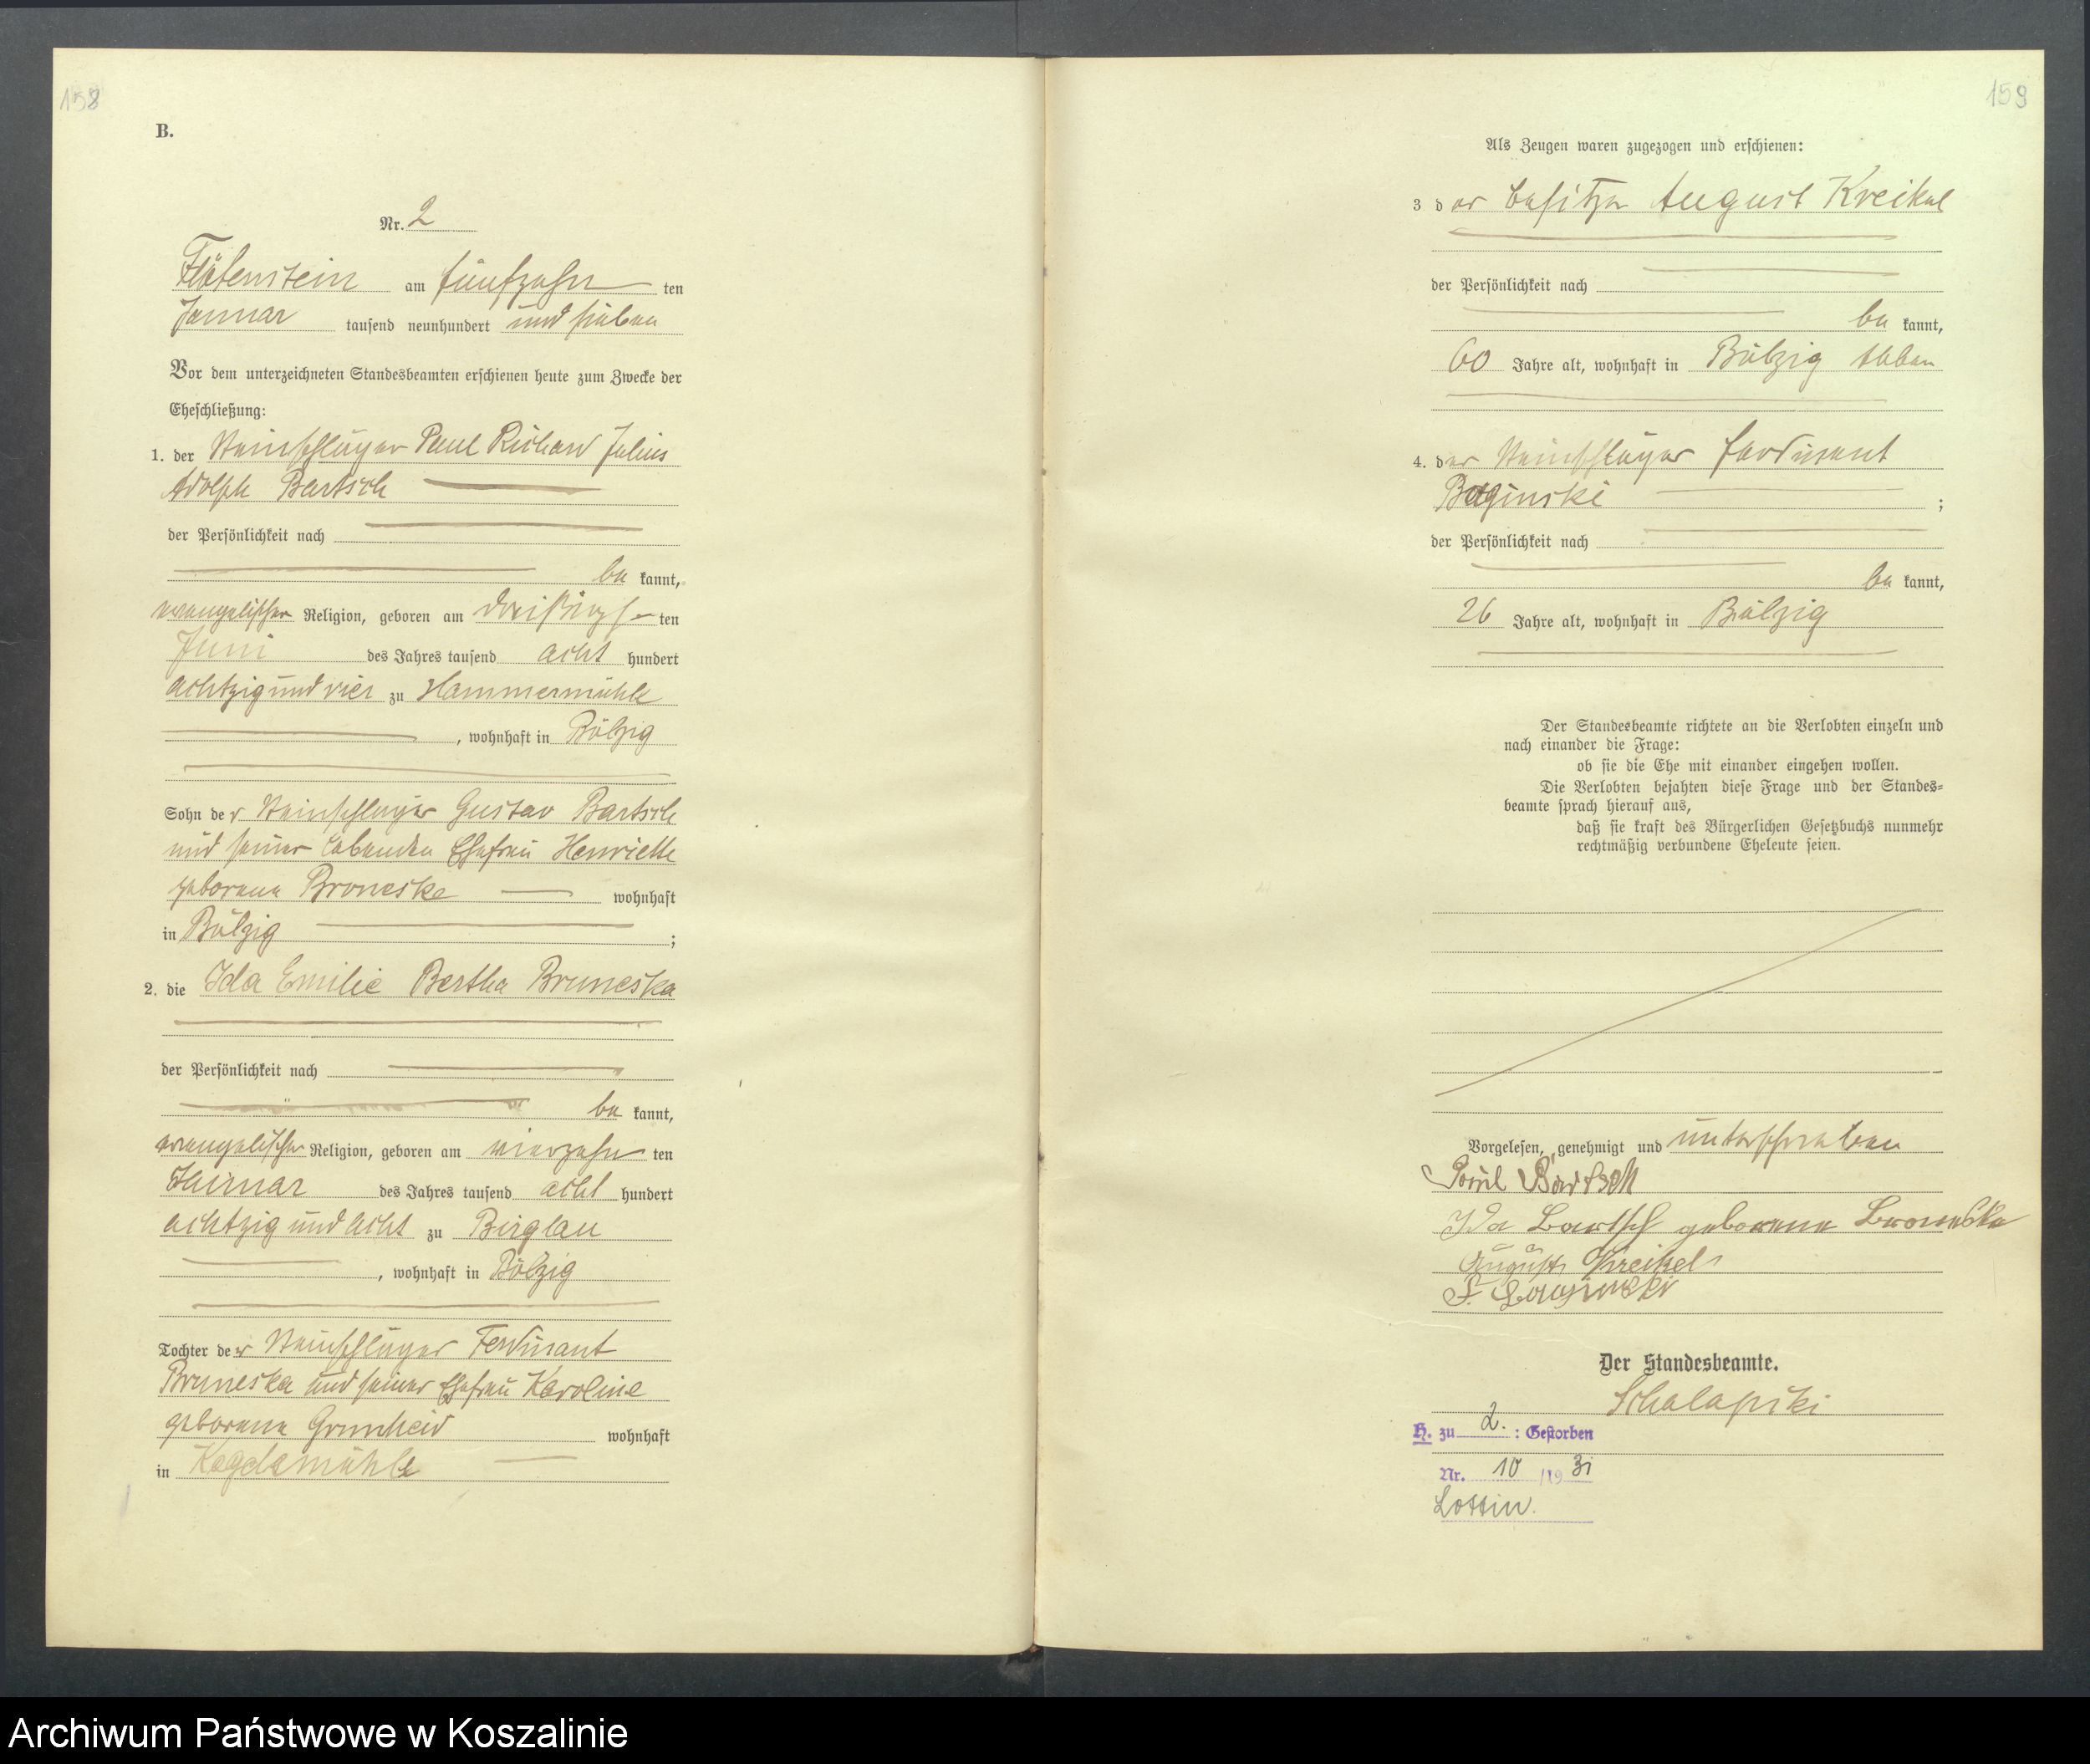 158
B.
Nr. 2
Flötenstein am fünfzehnten
Januar tausend neunhundert und sieben
Vor dem unterzeichneten Standesbeamten erschienen heute zum Zwecke der
Eheschließung:
1. der Steinschläger Paul Richard Julius
Adolph Bartsch
der Persönlichkeit nach
be kannt,
evangelischer Religion, geboren am dreißigsten
Juni des Jahres tausend acht hundert
achtzig und vier zu Hammermühle
, wohnhaft in Bölzig
Sohn der Steinschläger Gustav Bartsch
und seiner lebenden Ehefrau Henriette
geborene Broneske wohnhaft
in Bölzig ;
2. die Ida Emilie Bertha Bruneska
der Persönlichkeit nach
be kannt,
evangelischer Religion, geboren am vierzehn ten
Januar des Jahres tausend acht hundert
achtzig und acht zu Birglau
, wohnhaft in Bölzig
Tochter der Steinschläger Ferdinant
Bruneska und seiner Ehefrau Karoline
geborene Grunheid wohnhaft
in
159
Als Zeugen waren zugezogen und erschienen:
3 der Besitzer August Kreikel
der Persönlichkeit nach
be kannt,
60 Jahre alt, wohnhaft in Bölzig Abbau
4. der Steinschläger Ferdinant
Baginski ;
der Persönlichkeit nach
be kannt,
26 Jahre alt, wohnhaft in Bölzig
Der Standesbeamte richtete an die Verlobten einzeln und
nach einander die Frage:
ob sie die Ehe mit einander eingehen wollen.
Die Verlobten bejahten diese Frage und der Standes-
beamte sprach hierauf aus,
daß sie kraft des Bürgerlichen Gesetzbuchs nunmehr
rechtmäßig verbundene Eheleute seien.
Vorgelesen, genehmigt und unterschrieben
Paul Bartsch
Ida Bartsch geborene Broneska
August Kreikel
F. Baginski
Der Standesbeamte.
Schalapski
H. zu 2. : Gestorben
Nr. 10 /19 31
Lottin.
Archiwum Państwowe w Koszalinie